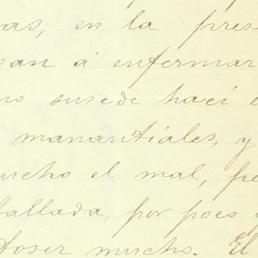 as, en la pres
san á enfermar
no susede hací e
manantiales, y
ucho el mal, pe
allada, por poco
toser mucho. El